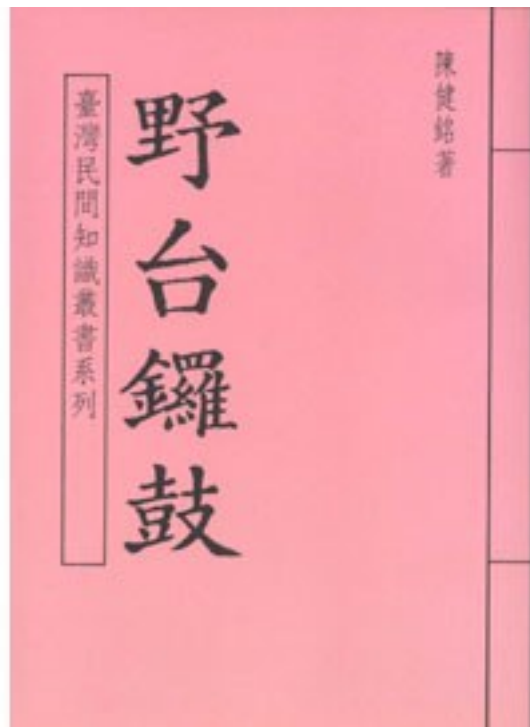 陳健銘著
野台鑼鼓
臺灣民間知識叢書系列